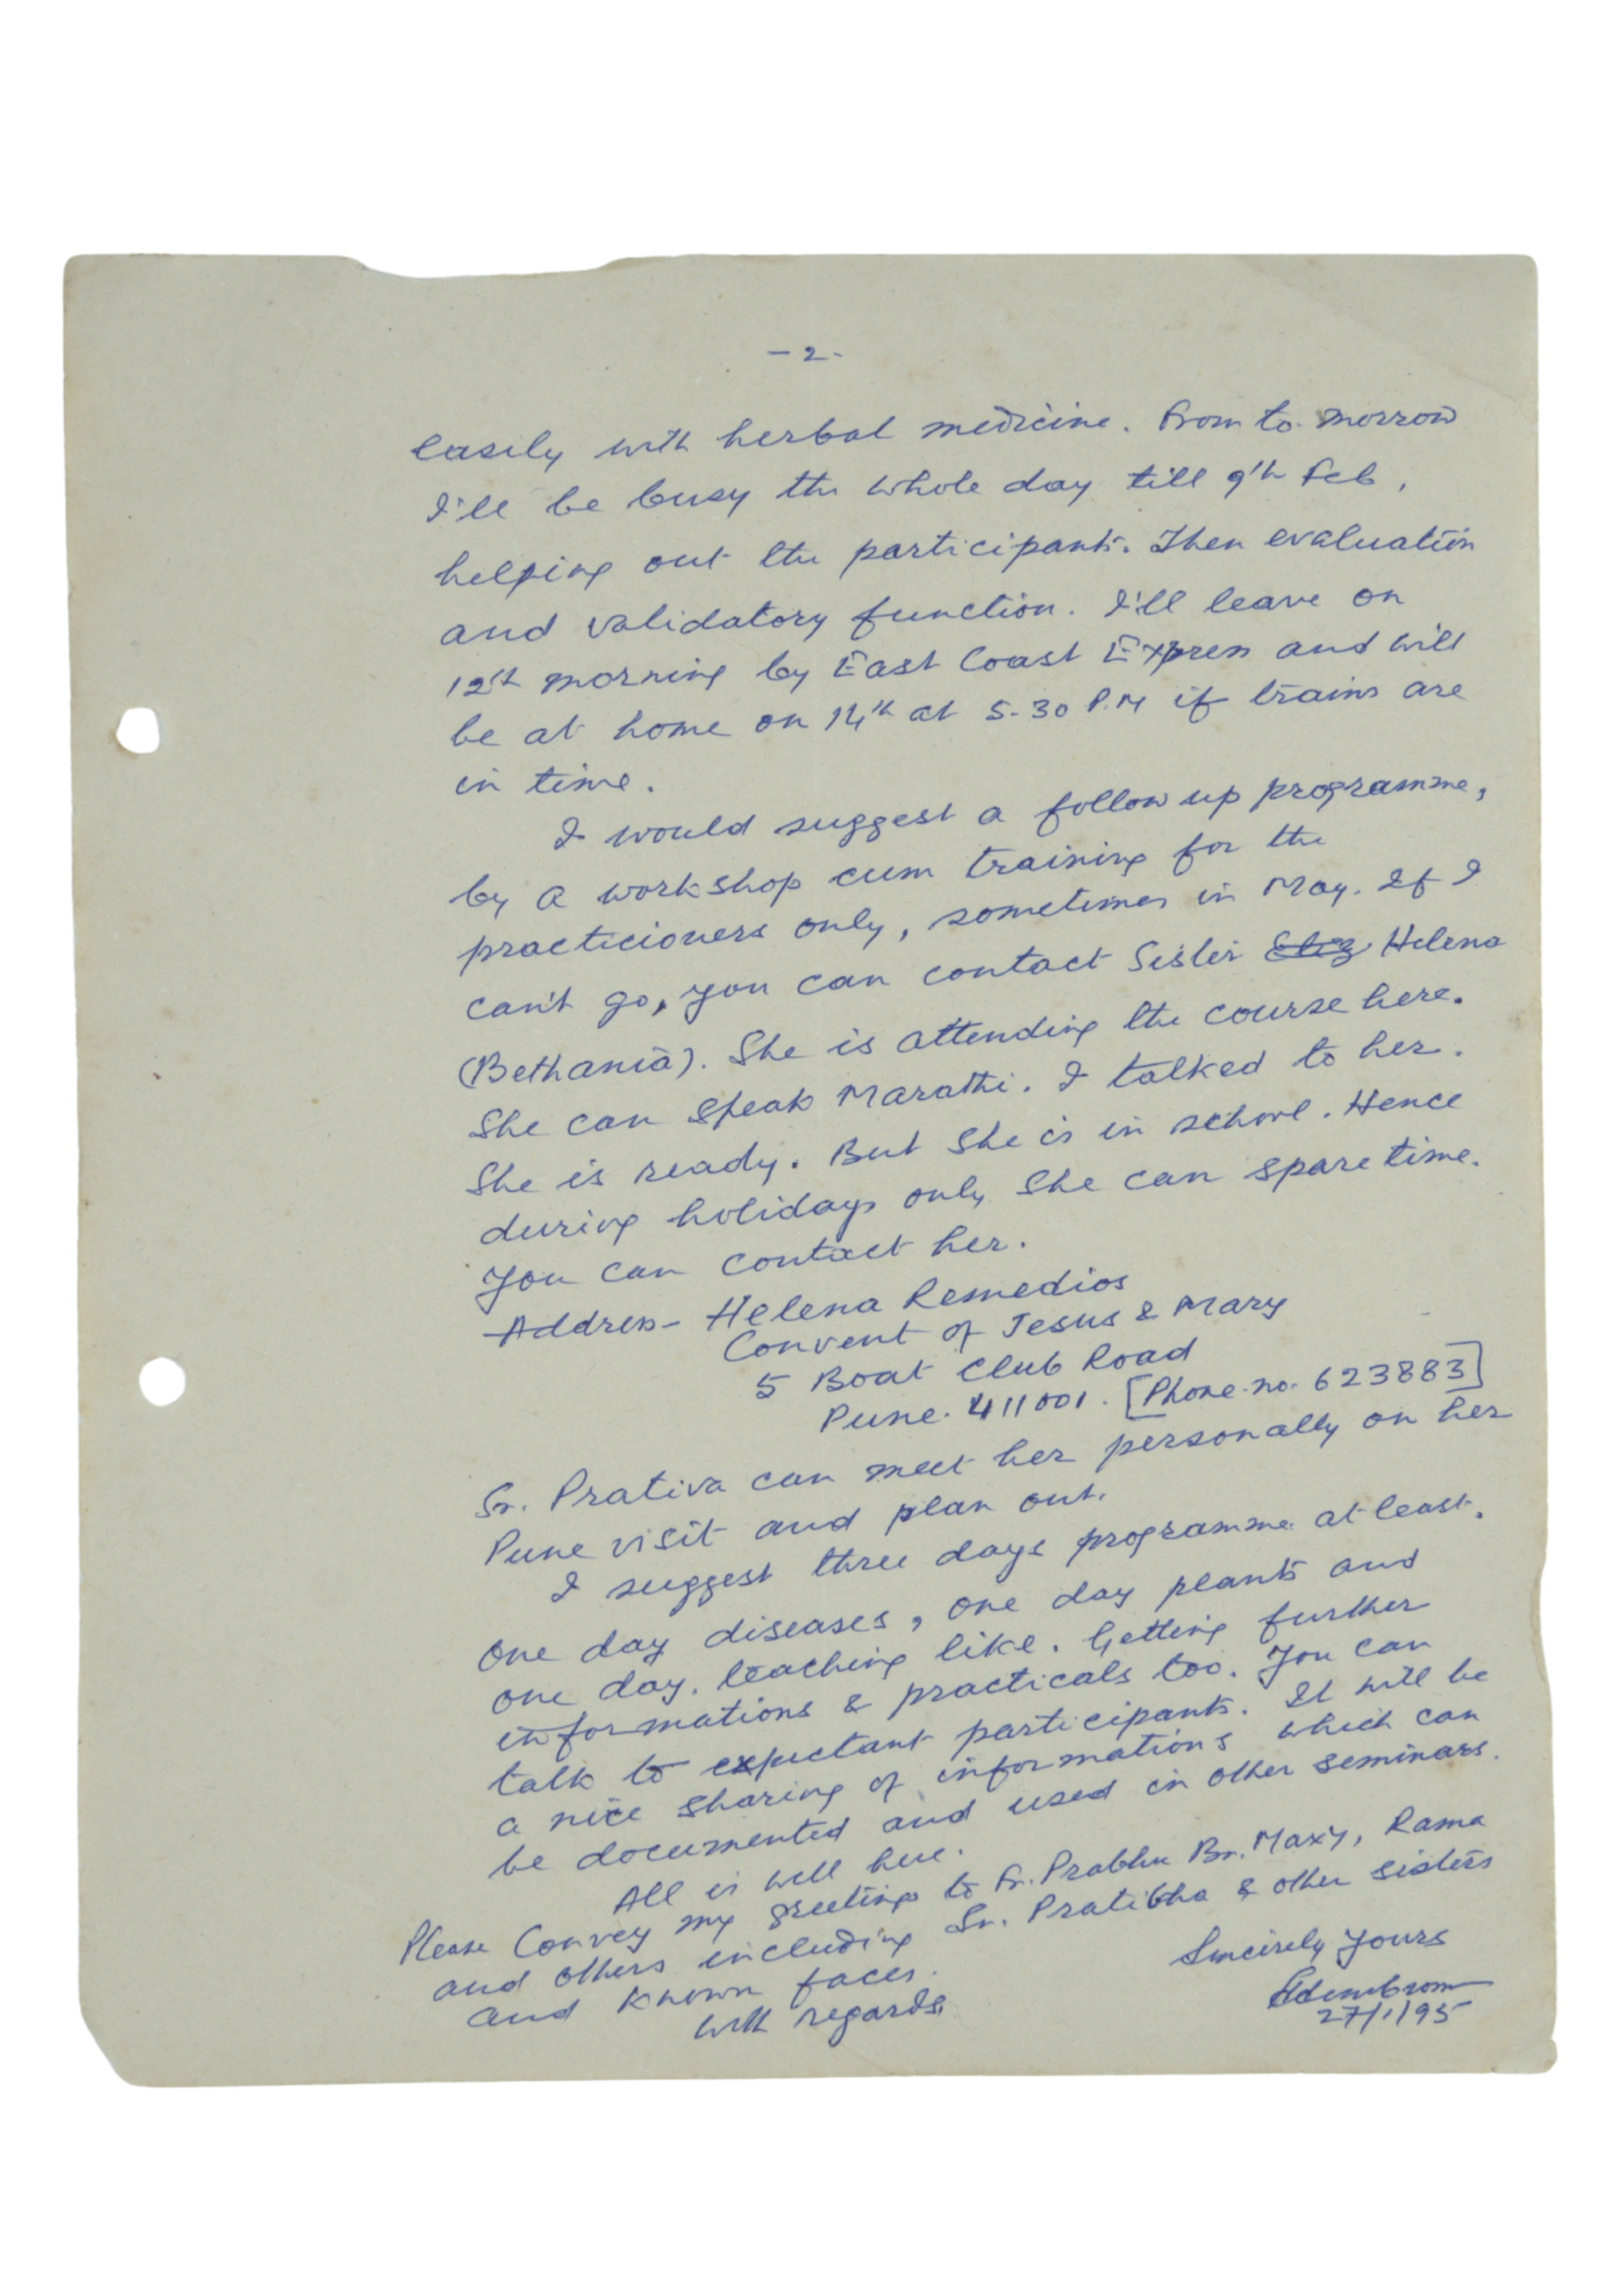 - 2 -
easily with herbal medicine. From to morrow
I'll be busy the whole day till 9th Feb,
helping out the participants. Then evaluation
and validatory function. I'll leave on
12th morning by East Coast Express and will
be at home on 14th at 5-30 P.M if trains are
in time.
I would suggest a follow up programme,
by a workshop cum training for the
practicioners only, sometimes in May. If I
can't go, you can contact Sister Eliz Helena
(Bethania). She is attending the course here.
She can speak Marathi. I talked to her.
She is ready. But she is in school. Hence
during holidays only she can spare time.
You can contact her.
Address - Helena Remedios
Convent of Jesus & Mary
5 Boat Club Road
Pune. 411001. [Phone no. 623883]
Sr. Prativa can meet her personally on her
Pune visit and plan out.
I suggest three days programme at least.
One day diseases, one day plants and
one day. teaching like. Getting further
informations & practicals too. You can
talk to expectant participants. It will be
a nice sharing of informations which can
be documented and used in other seminars.
All is well here.
Please Convey my greetings to Fr. Prabhu Br. Maxy, Rama
and others including Sr. Pratibha & other sisters
and known faces.
With regards
Sincirely Yours
27/1/95